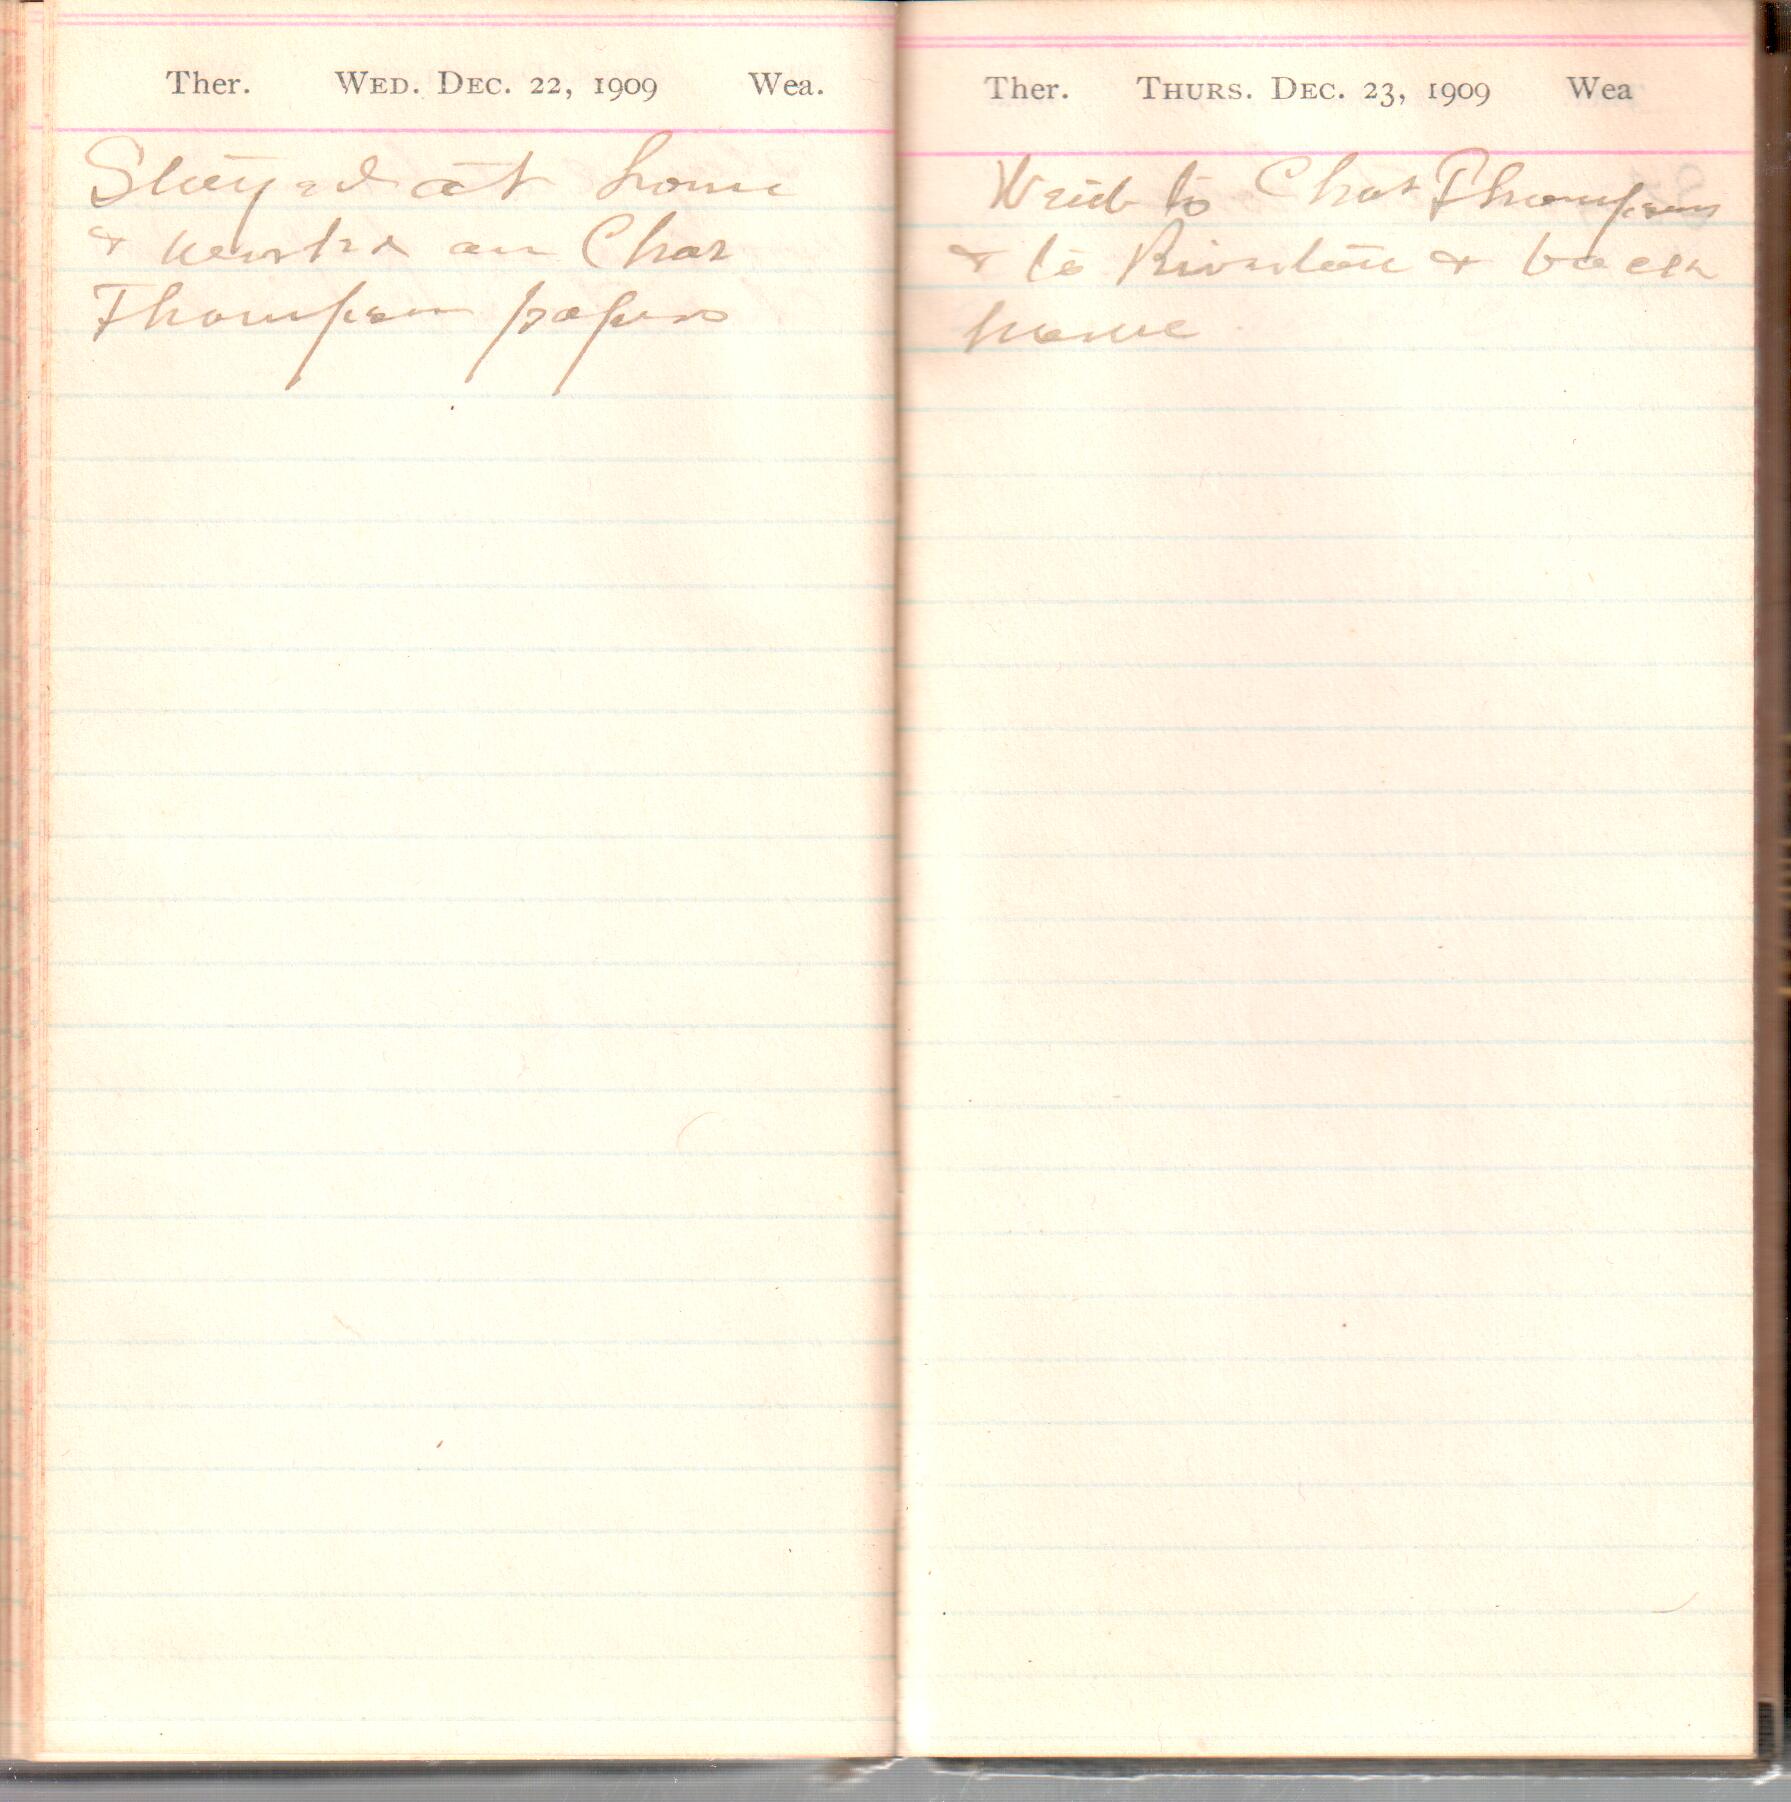 Ther. WED. DEC. 22, 1909 Wea.
Stayed at home
& worked on Chas
Thompson papers
Ther. THURS. DEC. 23, 1909 Wea
Went to Chas Thompson
& to Riverton & back
home